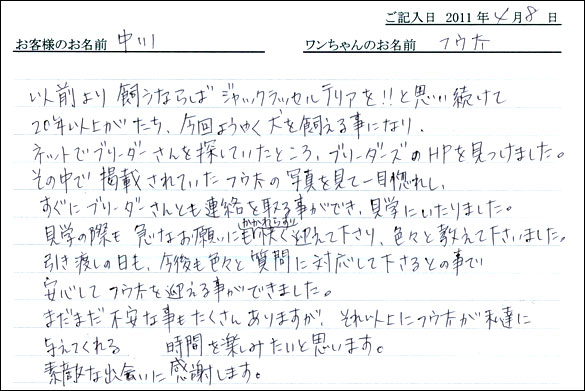 ご記入日 2011年4月8日
お客様のお名前 中川 ワンちゃんのお名前 フウ太
以前より飼うならばジャックラッセルテリアを!!と思い続けて
20年以上がたち、今回ようやく犬を飼える事になり、
ネットでブリーダーさんを探していたところ、ブリーダーズのHPを見つけました。
その中で掲載されていたフウ太の写真を見て一目惚れし、
すぐにブリーダーさんとも連絡を取る事ができ、見学にいたりました。
見学の際も急なお願いにもかかわらず快く迎えて下さり、色々と教えて下さいました。
引き渡しの日も、今後も色々と質問に対応して下さるとの事で
安心してフウ太を迎える事ができました。
まだまだ不安な事もたくさんありますが、それ以上にフウ太が私達に
与えてくれる 時間を楽しみたいと思います。
素敵な出会いに感謝します。